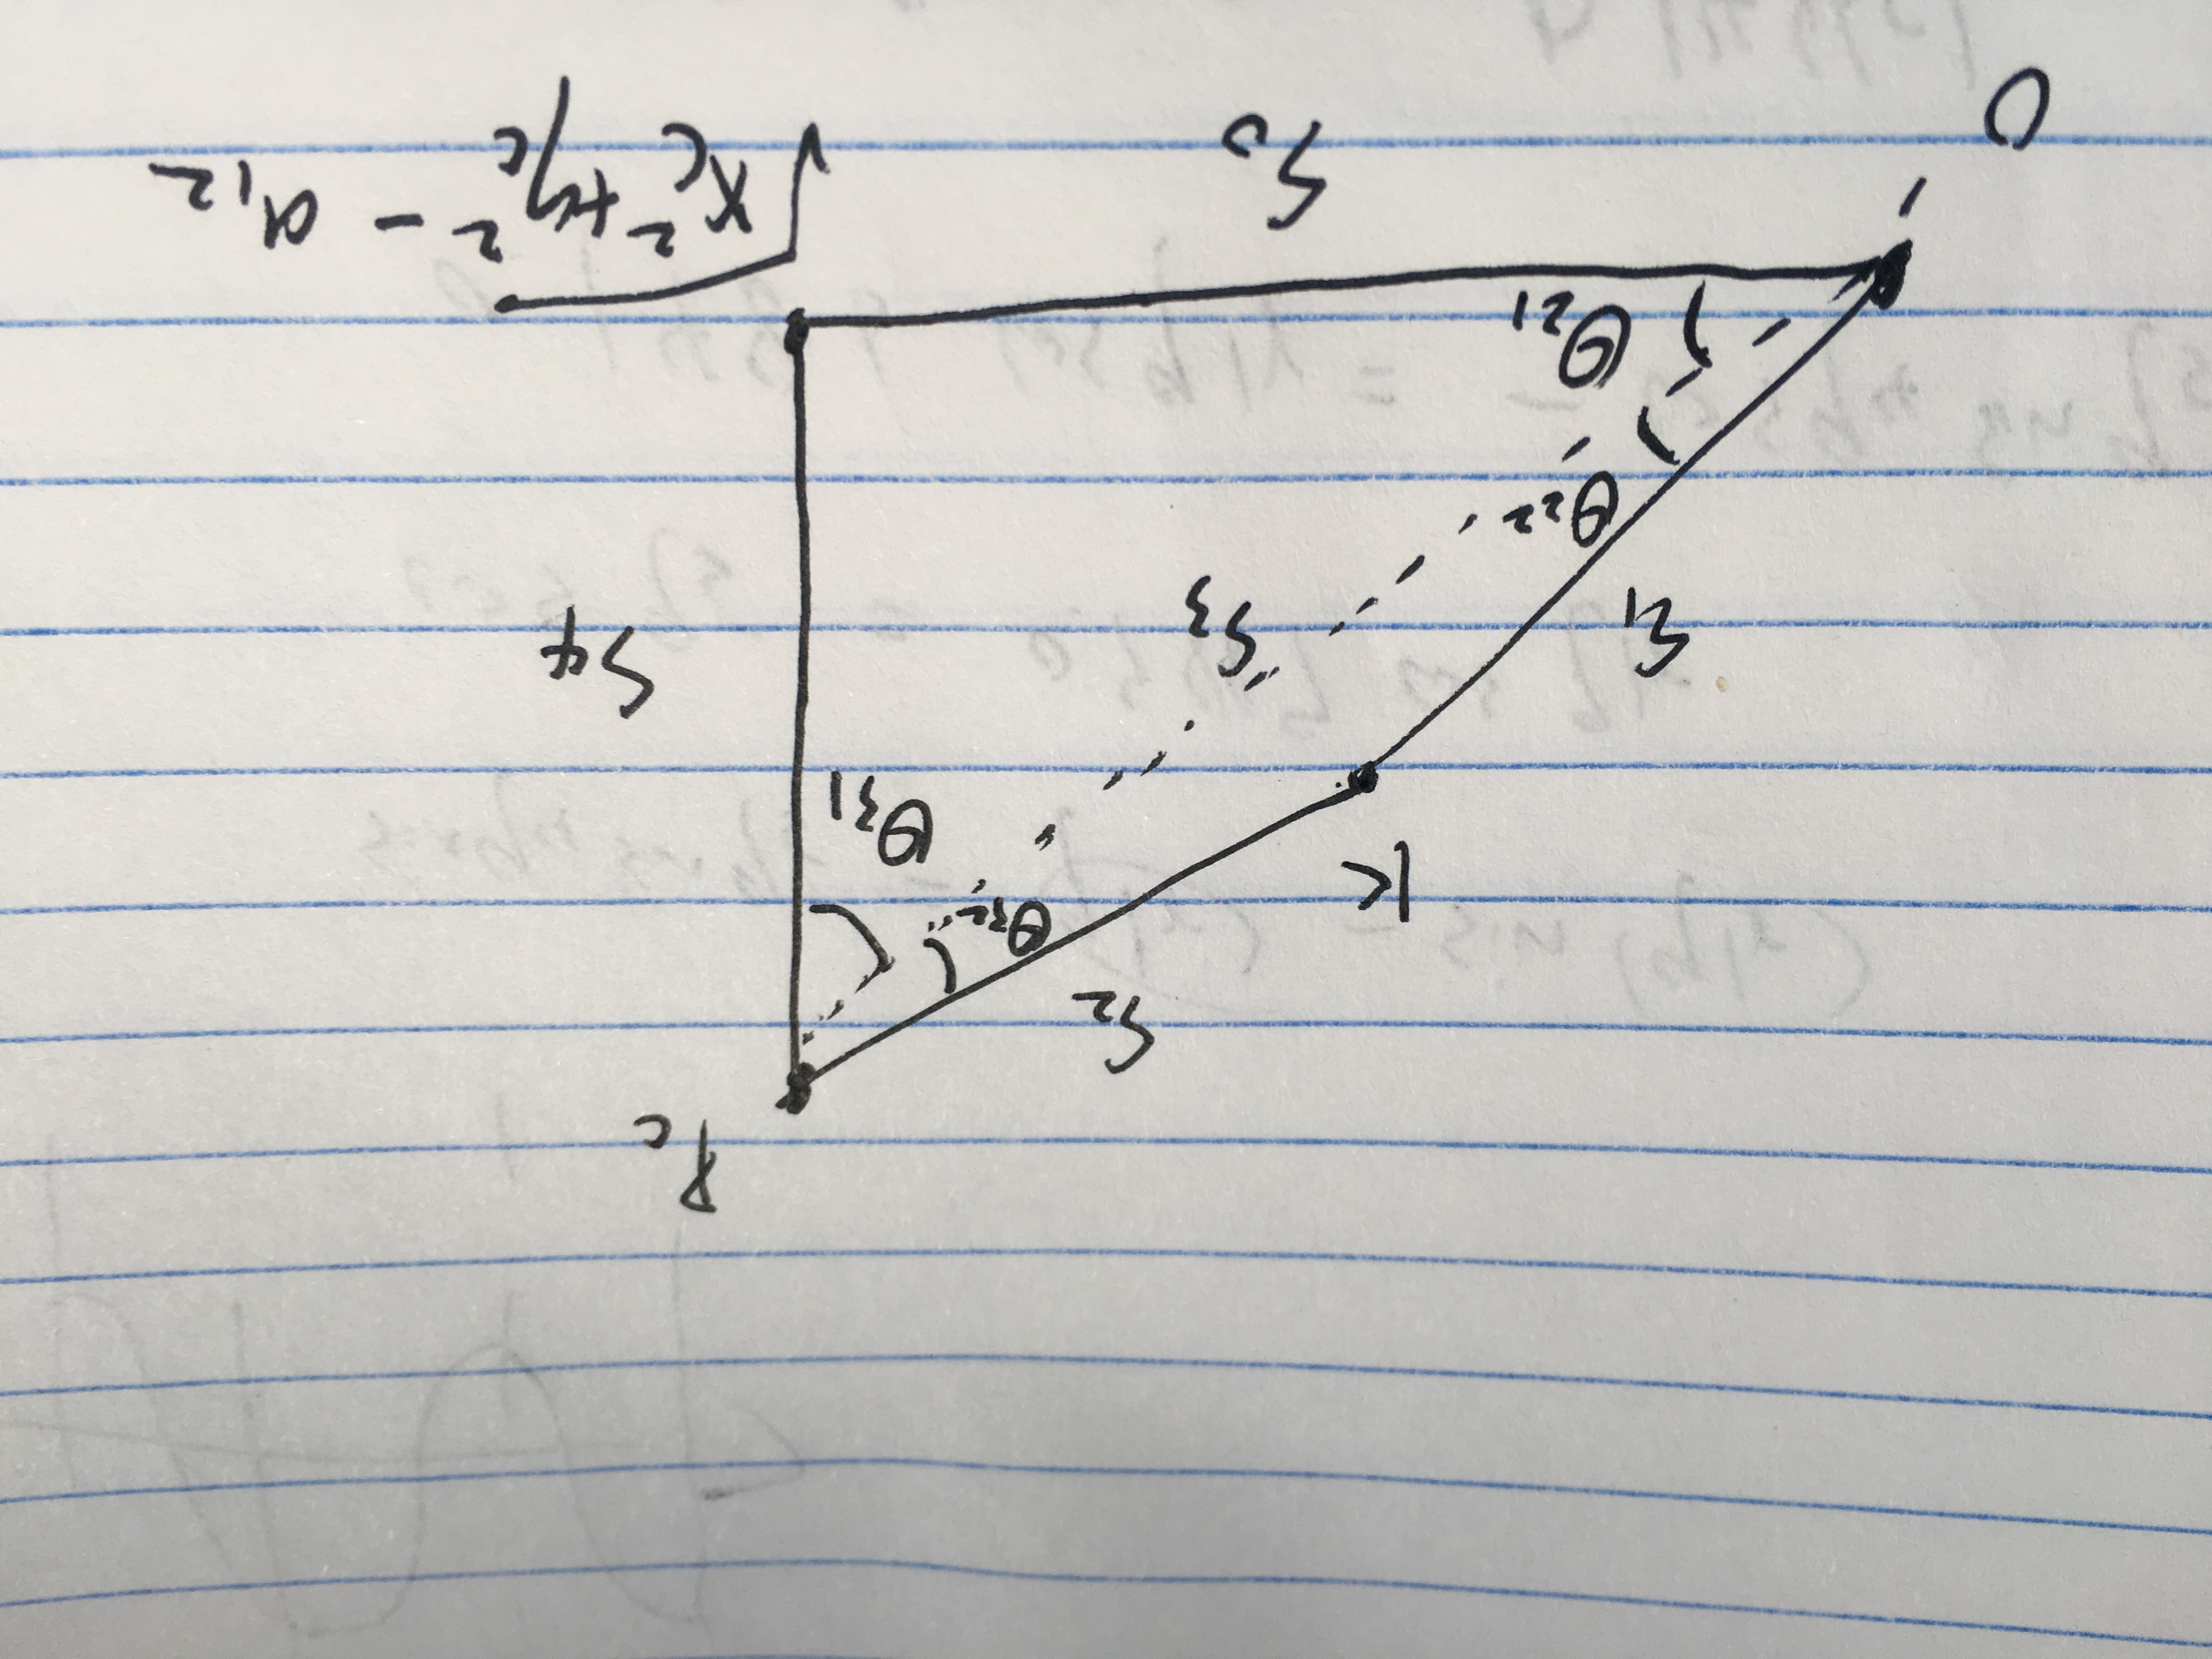 P_c
S_2
θ_32
K
θ_31
S_1
S_3
S_4
θ_22
θ_21
O
S_0
√(x_c^2+y_c^2) - a_12